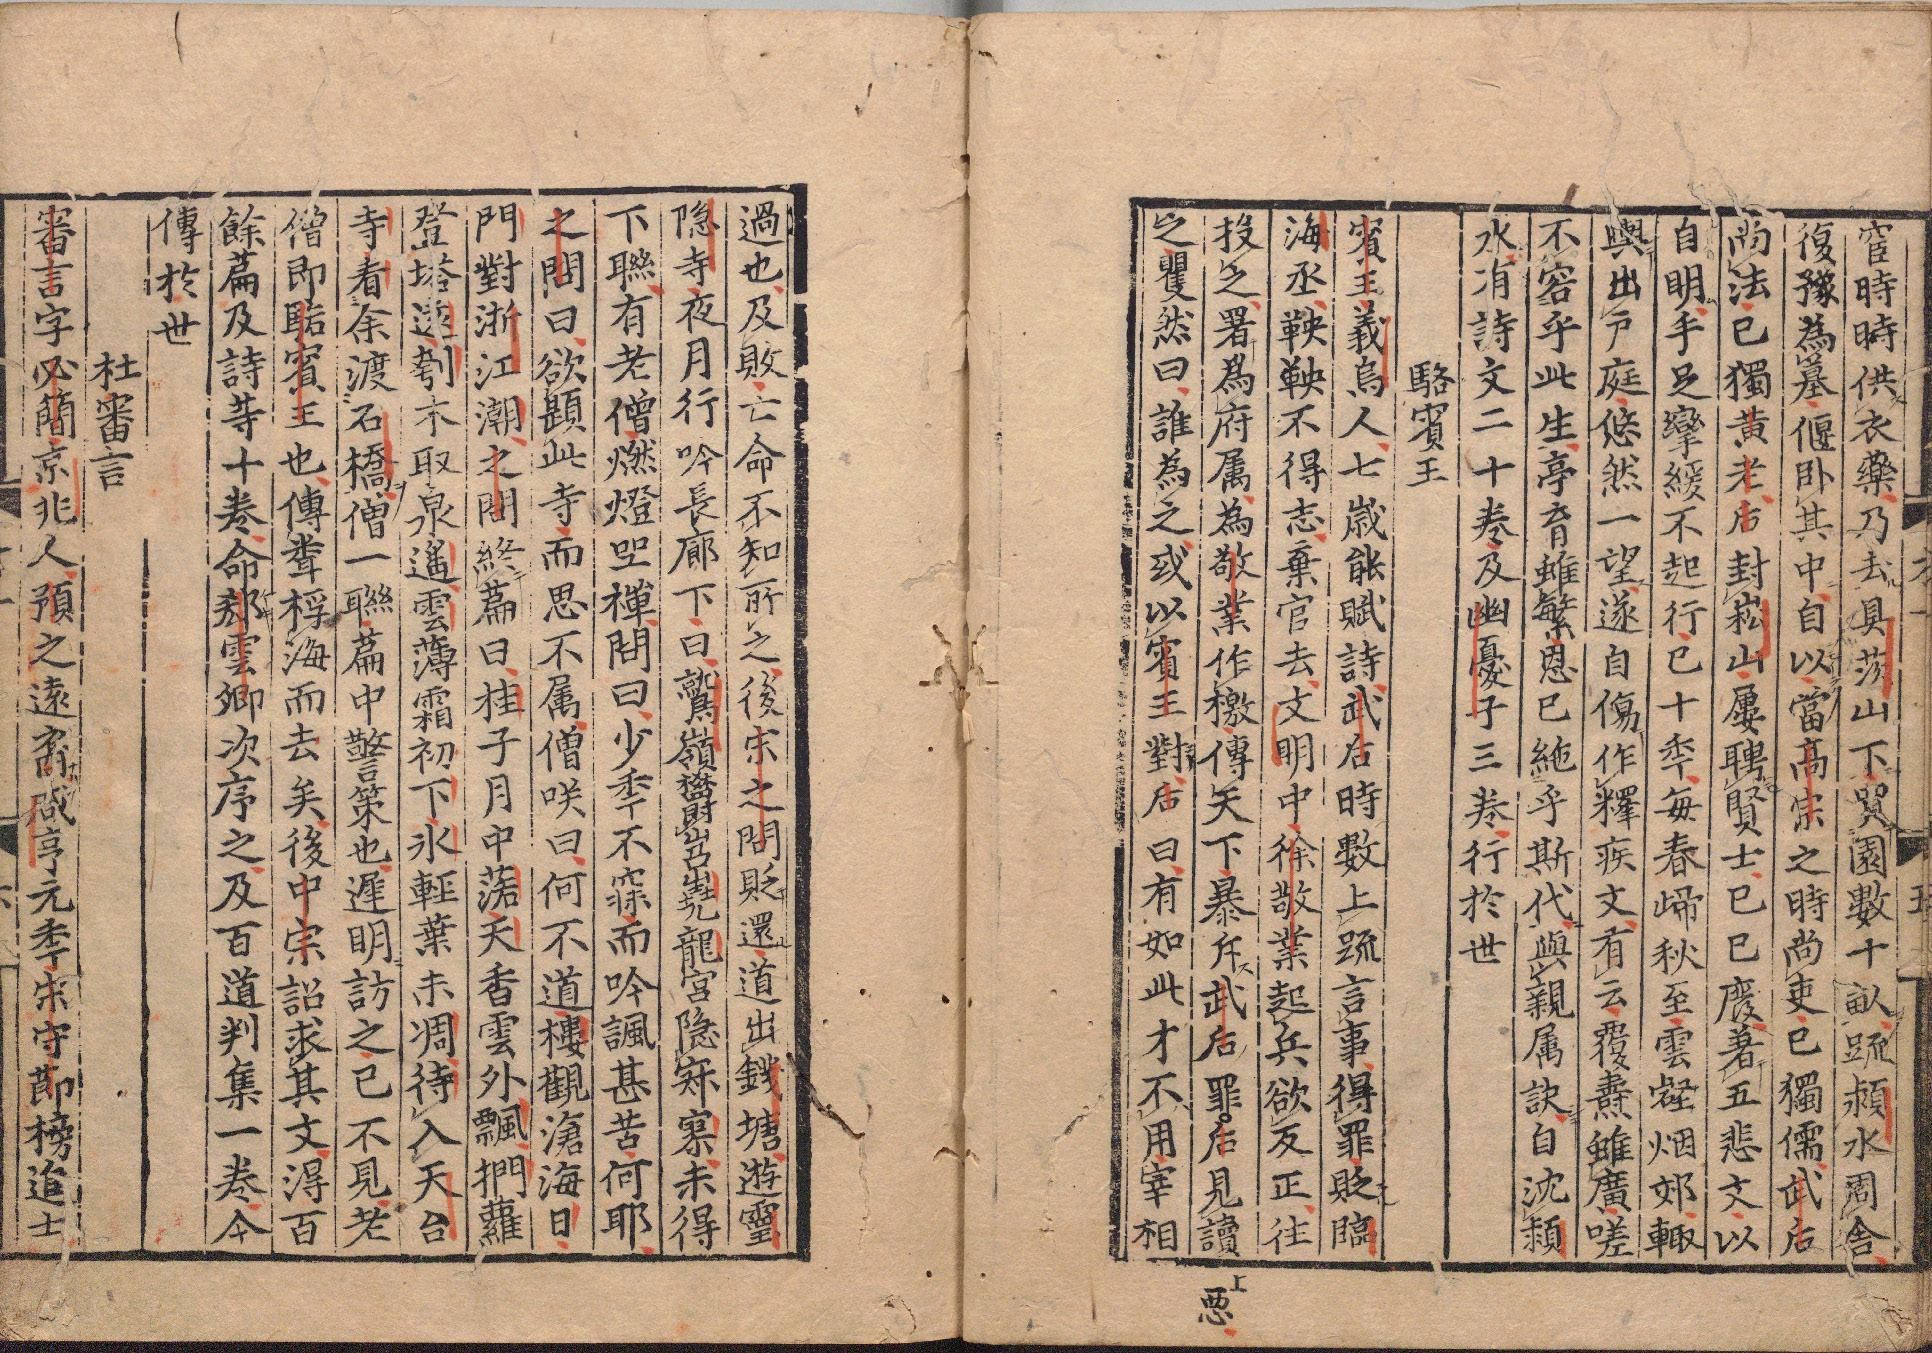 窘時時供衣藥乃去具茨山下買園數十畝䟽潁水周舍
復豫為墓偃卧其中自以當髙宗之時尚吏已獨儒武后
尚法已獨黄老后封崧山屢聘賢士已已廢著五悲文以
自明手足攣緩不起行已十秊每春㱕秋至雲壑烟郊輙
輿出戸庭悠然一望遂自傷作釋疾文有云覆燾雖廣嗟
不容乎此生亭育雖繁恩已絶乎斯代與親属訣自沈潁
水有詩文二十巻及幽憂子三巻行於世
駱賔王
賔王義烏人七歳能賦詩武后時數上疏言事得罪貶臨
海丞鞅鞅不得志棄官去文明中徐敬業起兵欲反正往
投之署爲府属為敬業作檄傳天下暴斥武后罪后見讀
之矍然曰誰為之或以賔王對后曰有如此才不用宰相
上
悪
過也及敗亡命不知所之後宋之問貶還道出錢塘遊靈
隐寺夜月行吟長廊下曰鷲嶺欝岧嶤龍宫隐寂寞未得
下聯有老僧燃燈坐禅問曰少秊不寐而吟諷甚苦何耶
之問曰欲題此寺而思不属僧咲曰何不道樓觀滄海日
門對浙江潮之問終篇曰桂子月中落天香雲外飄捫蘿
登塔逺刳木取泉遥雲薄霜初下氷輕葉未凋待入天台
寺看余渡石橋僧一聯篇中警策也遲明訪之已不見老
僧即駱賔王也傳聋桴海而去矣後中宗詔求其文得百
餘篇及詩等十巻命郄雲卿次序之及百道判集一巻今
傳於世
杜審言
審言字必簡京兆人預之遠裔咸亨元秊宋守莭榜進士